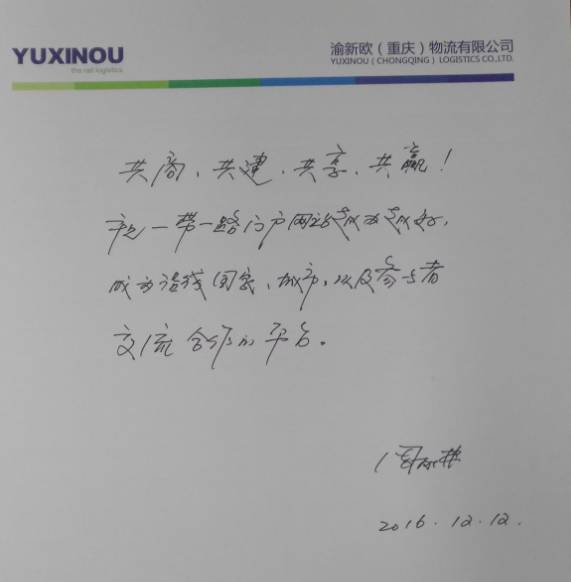 YUXINOU
the rail logistics
渝新欧（重庆）物流有限公司
YUXINOU（CHONGQING）LOGISTICS CO.,LTD.
共商、共建、共享、共赢！
祝一带一路门户网站越办越好，
成为沿线国家、城市、以及参与者
交流合作的平台。
2016.12.12.